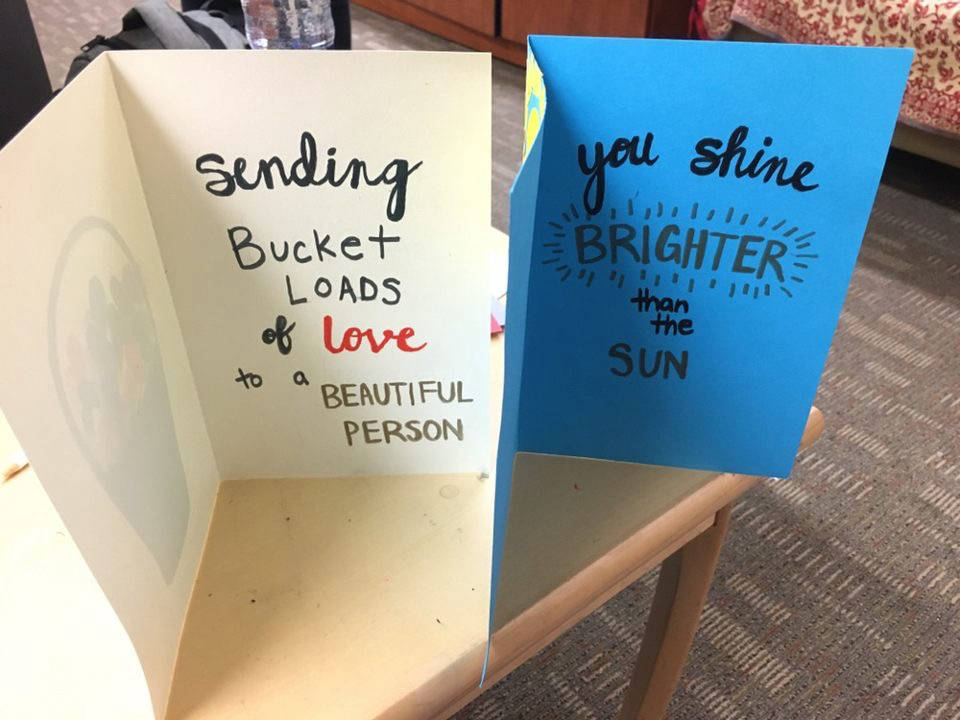 sending
Bucket
LOADS
of love
to a BEAUTIFUL
PERSON
you shine
BRIGHTER
than
the
SUN